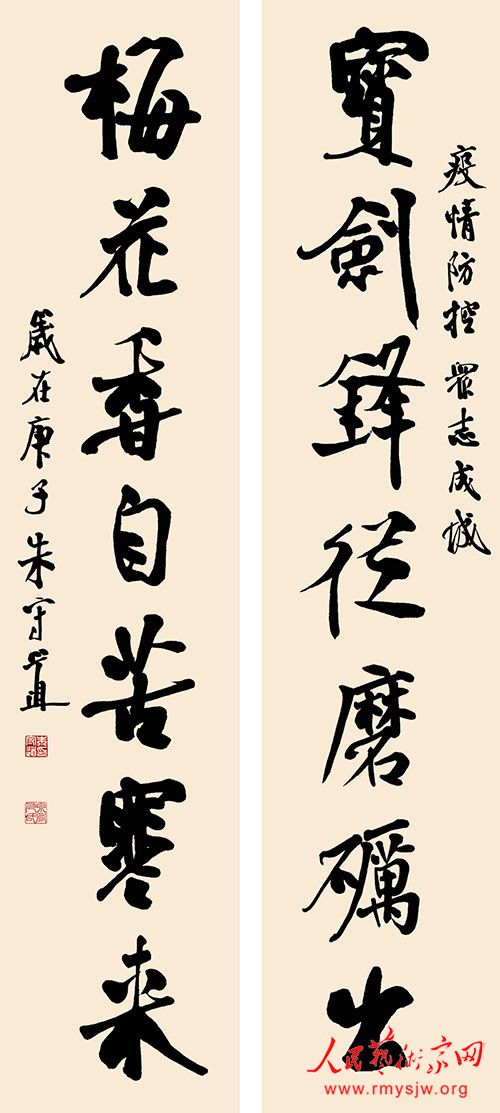 疫情防控 眾志成城
寶劍鋒從磨礪出
梅花香自苦寒來
歲在庚子朱守道
人民藝術家网
www.rmysjw.org